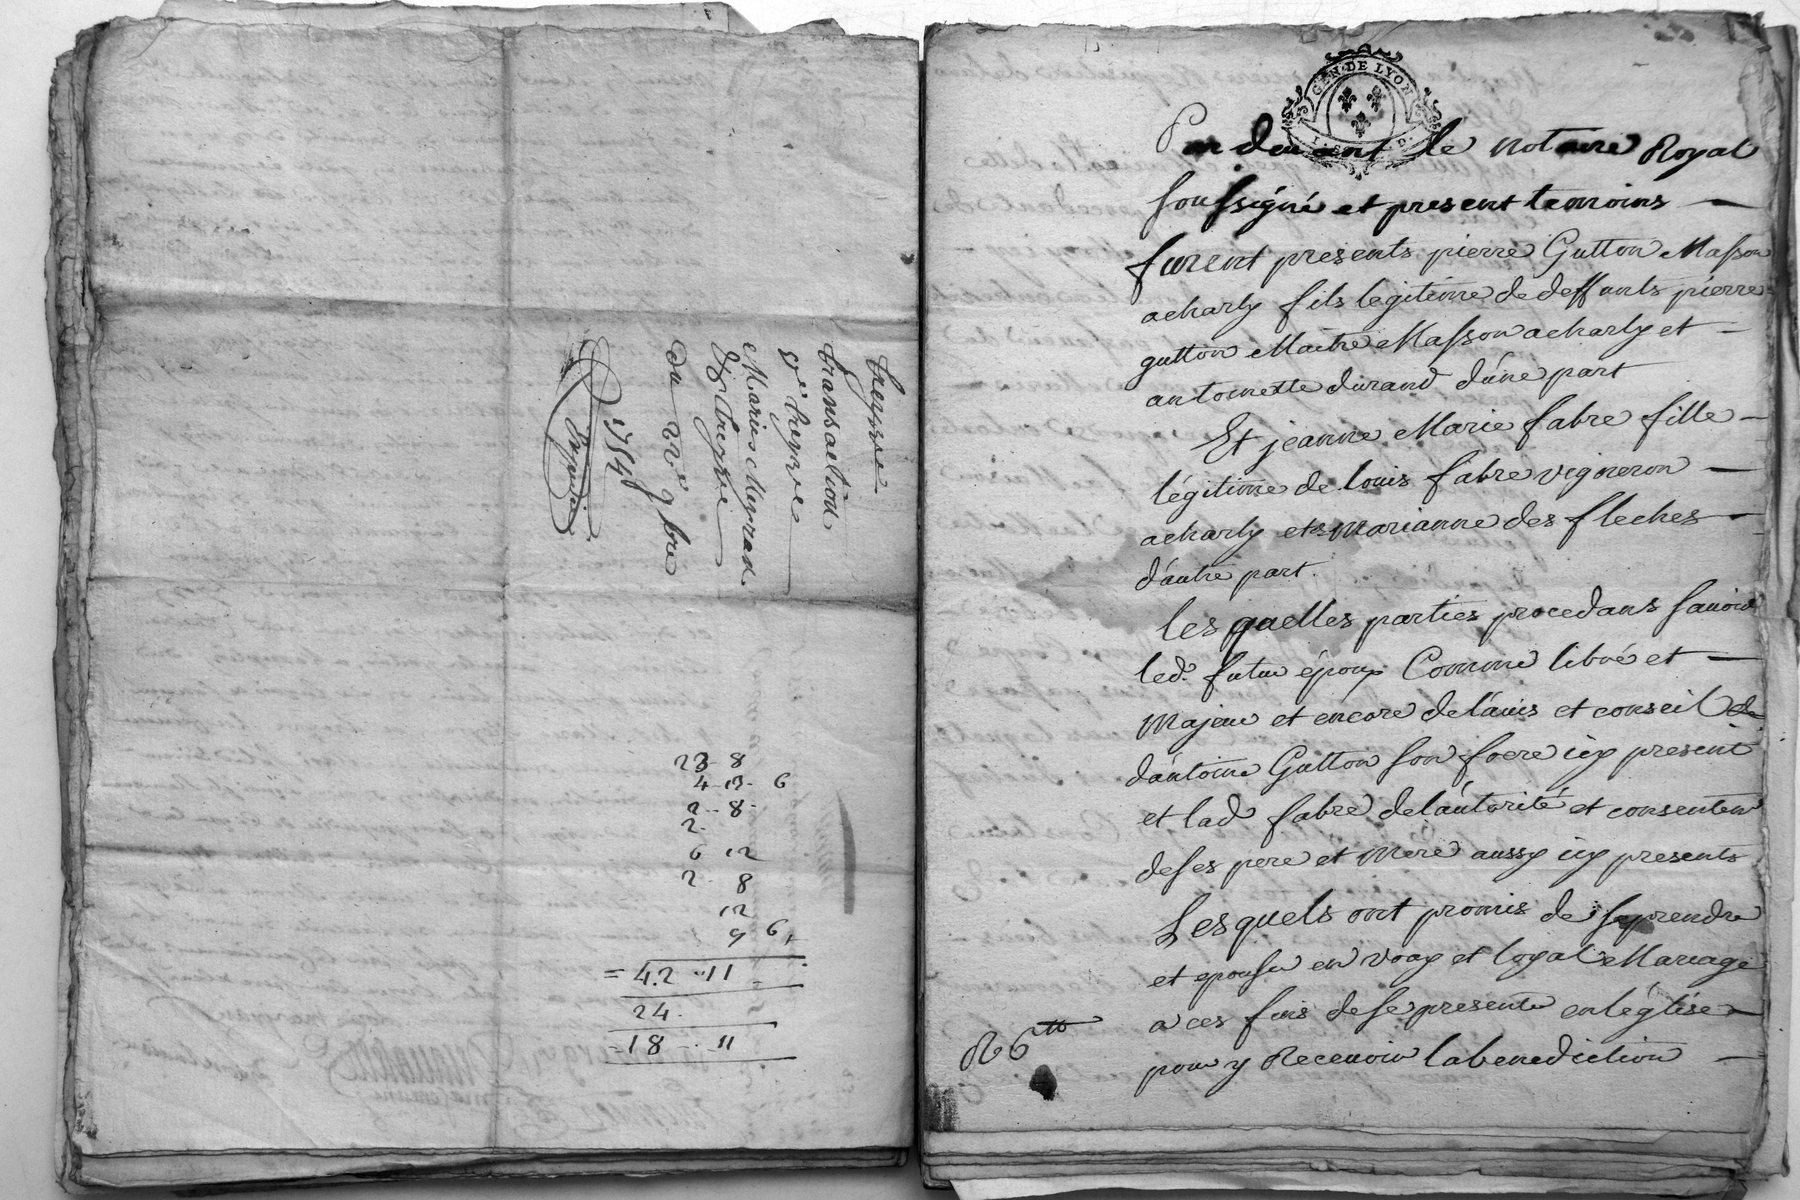 treyvre
transaction
Sr. treyvre
Marie Meyrad.
dit treyvre
du 22e 9bre
1748
23 8
4 13 6
2 8
2
6 12
2 8
12
9 6
= 42 11
24
= 18 11
GEN. DE LYON
Par devant le notaire Royal
soussigné et present temoins
furent presents pierre Gutton Masson
acharly fils legitime de deffunts pierre
gutton Maitre Masson acharly et
antoinette durand d'une part
Et jeanne Marie fabre fille
légitime de louis fabre vigneron
acharly et marianne des fleches
d'autre part.
les quelles parties procedans savoir
led. futur époux Comme libre et
majeur et encore de l'avis et conseil de
d'antoine Gutton son frere icy present
et lad fabre de l'autorité et consentem
de ses pere et mere aussy icy presents
Lesquels ont promis de se prendre
et epouser en vray et loyal Mariage
a ces fins de se presenter en l'église
pour y Recevoir la benediction
R 6tt